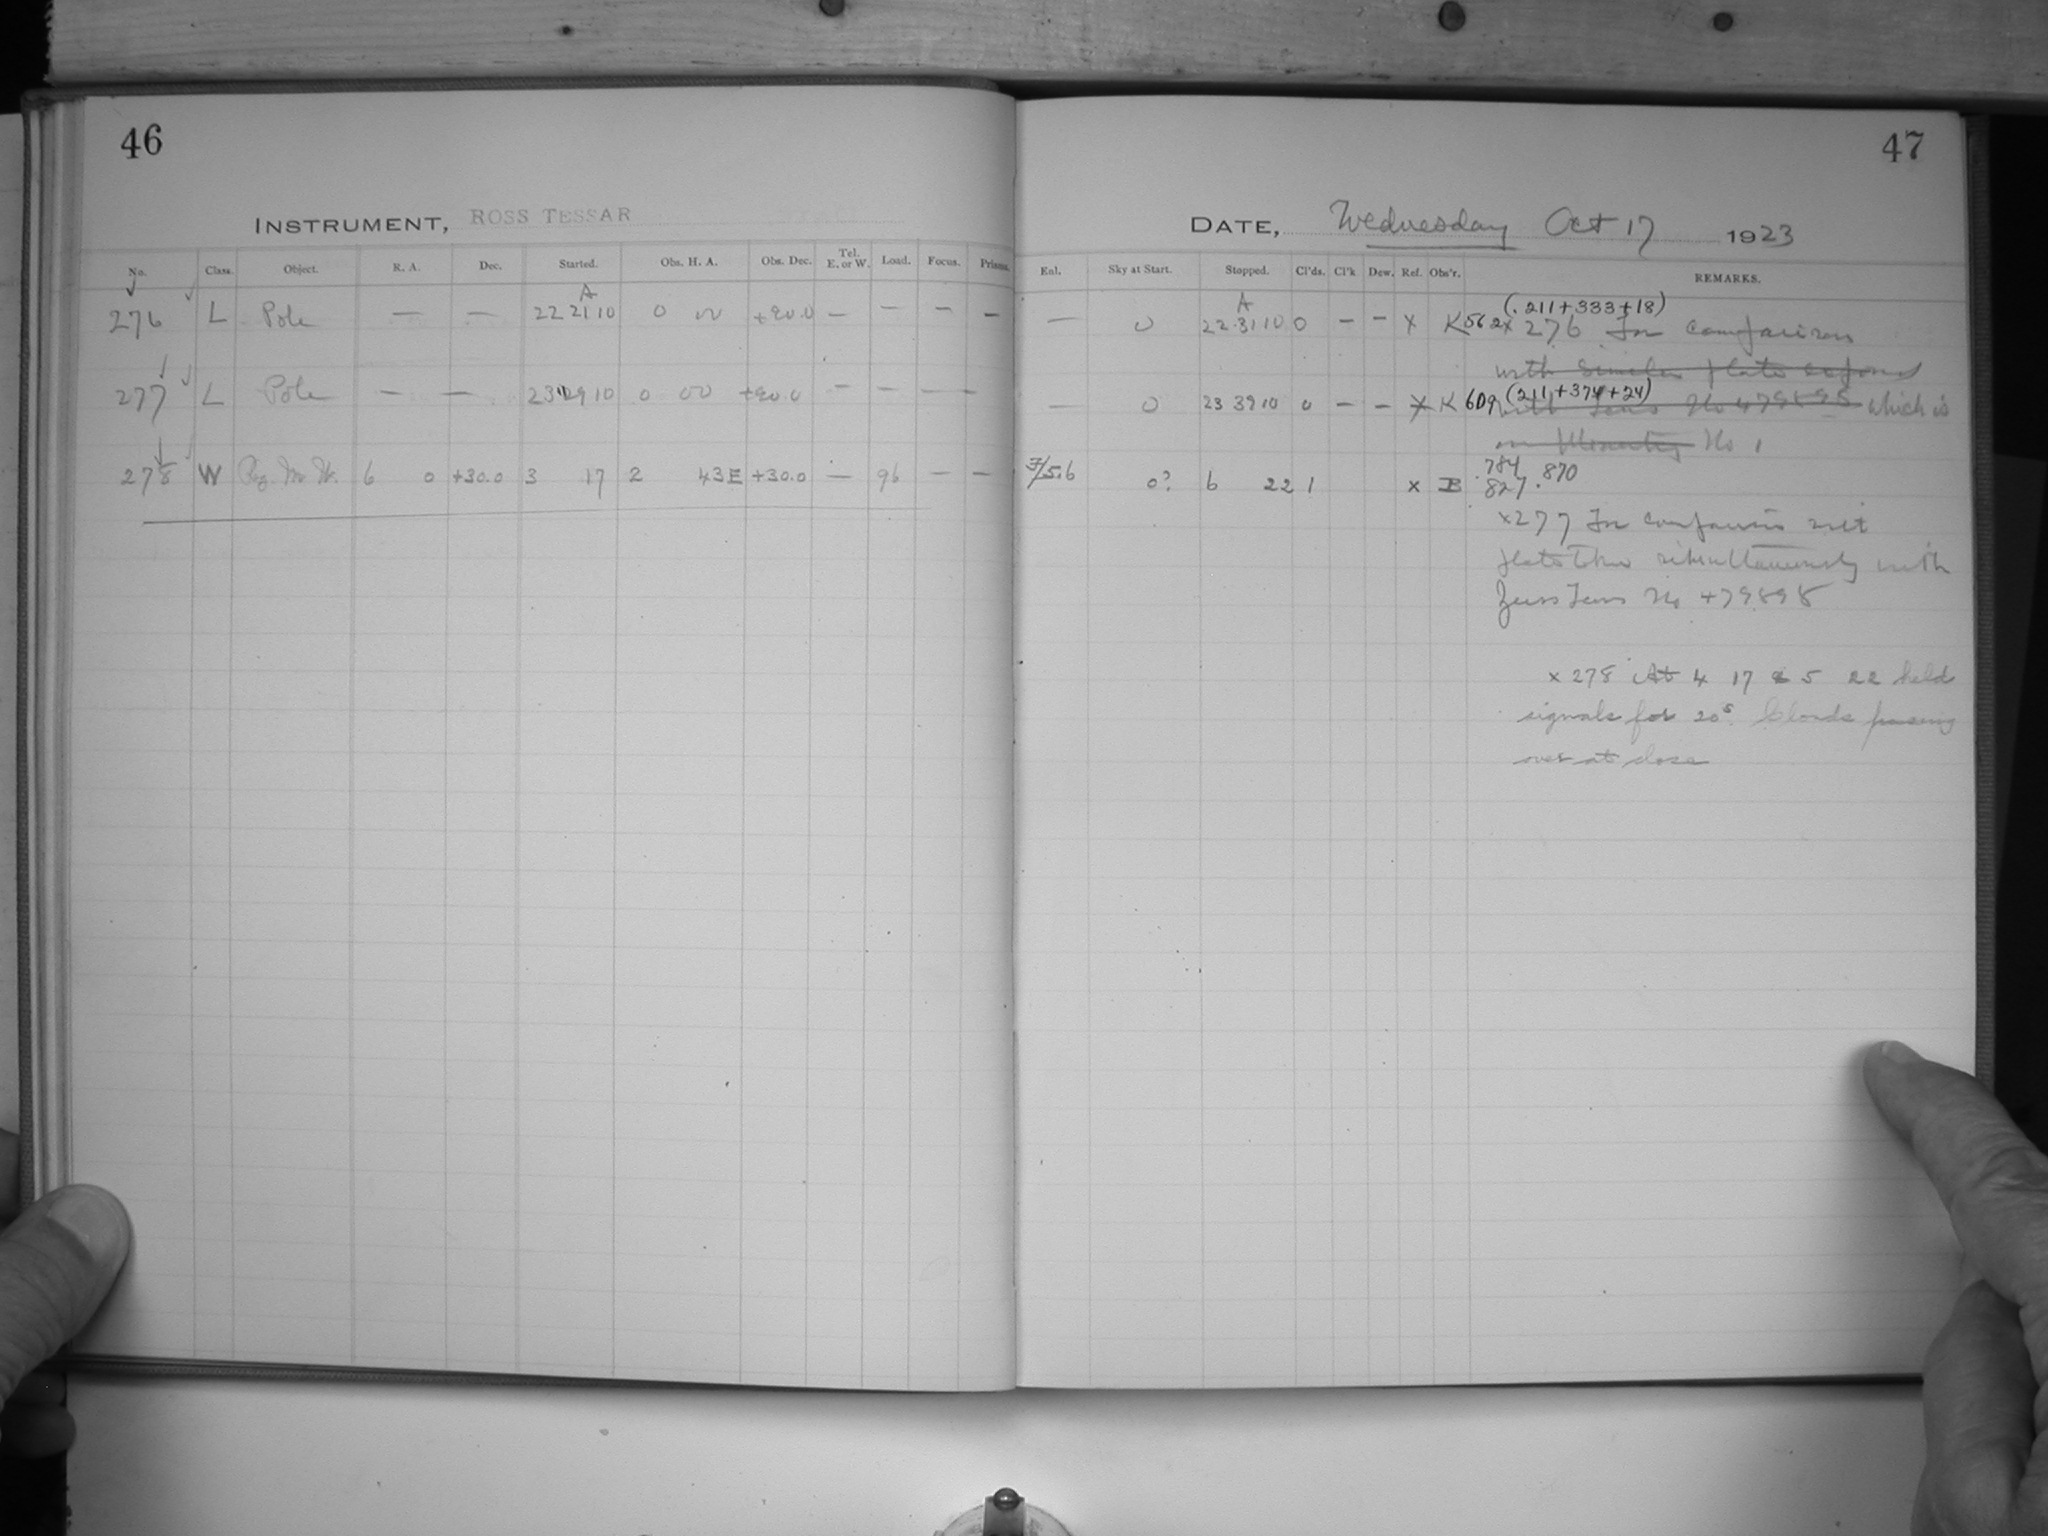 46
INSTRUMENT, ROSS TESSAR
No. Class. Object. R. A. Dec. Started. Obs. H. A. Obs. Dec. Tel. E. or W. Load. Focus. Prisms.
276 L Pole — — A 22 21 10 0 00 +90.0 — — — —
277 L Pole — — 23 29 10 0 00 +90.0 — — — —
278 W 6 0 +30.0 3 17 2 43E +30.0 — 96 — —
47
DATE, Wednesday Oct 17 1923
Enl. Sky at Start. Stopped. Cl'ds. Cl'k Dew. Ref. Obs'r. REMARKS.
— 0 A 22 31 10 0 — — x K 562 (.211+333+18)
x 276 For comparison
with similar plate exposed
— 0 23 39 10 0 — — x K 609 (211+374+24)
with Lens No 479898 which is
on No 1
F/5.6 0? 6 22 1 x B .784
.827 .870
x277 For comparison with
plate simultaneously with
Zeiss Lens No 479898
x 278 At 4 17 & 5 22 held
signals for 20s. Clouds passing
over at close